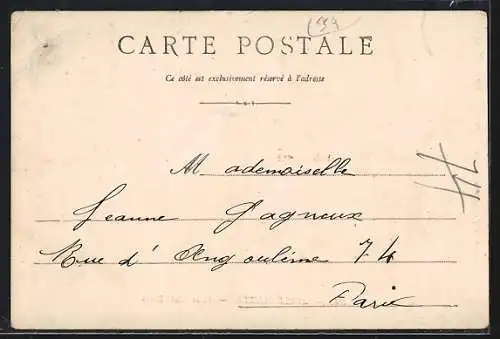 CARTE POSTALE
Ce côté est exclusivement réservé à l'adresse
Mademoiselle
Jeanne Gagneux
Rue d'Angoulême 74
Paris